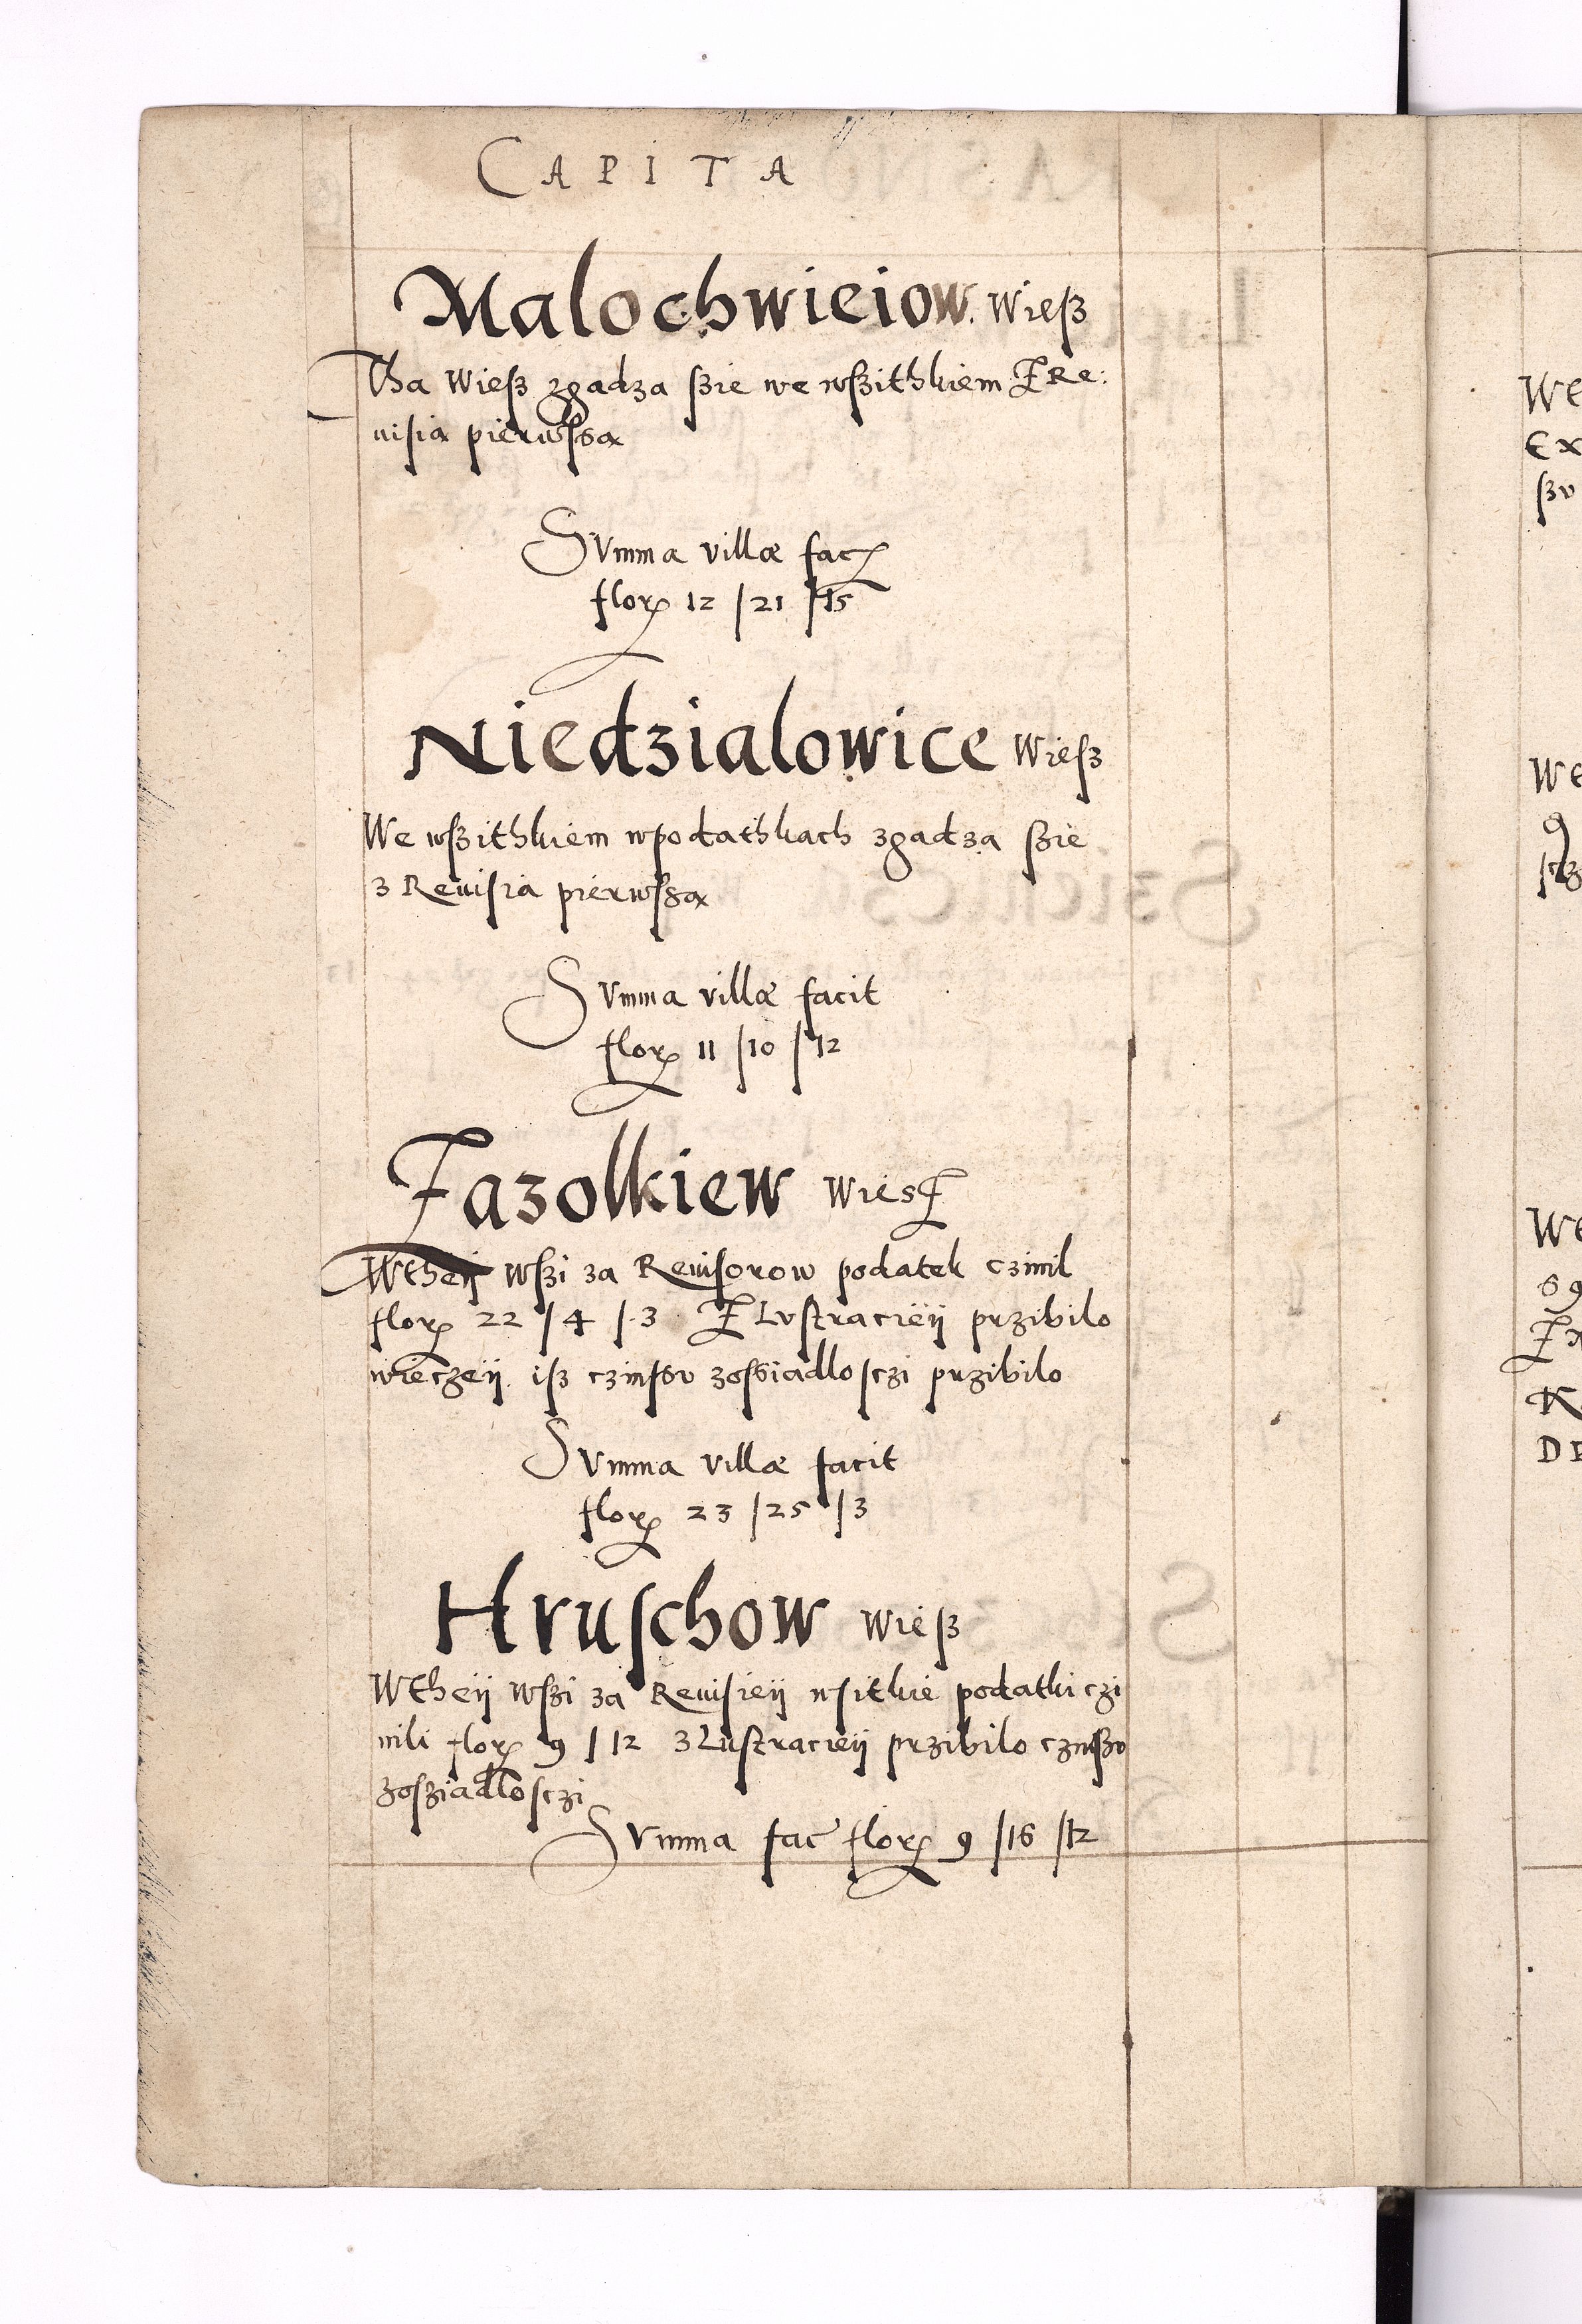 CAPITA
Malochwieiow. Wieß
Tha Wieß zgadza ßie we wßithkiem Z Re:
uisia pierwſsa
Summa villæ fac
flor 12 /21 /15
Niedzialowice Wieß
We wßithkiem wpodathkach zgadza ßie
z Reuisia pierwſsa
Summa villæ facit
flor 11 /10 /12
Zazolkiew WiesZ
Wtheÿ wßi za Reuisorow podatek czinil
flor 22 /4 /3 Z Luſtracieÿ przibilo
wieczeÿ iß czinſsu zossiadloſczi przibilo
Summa villæ facit
flor 23 /25 /3
Hruſchow Wieß
Wtheÿ wßi za Reuisieÿ wſitkie podatki czi
nili flor 9 /12 z Luſtracieÿ przibilo czinßu
zoſziadloſczi
Summa fac flor 9 /16 /12